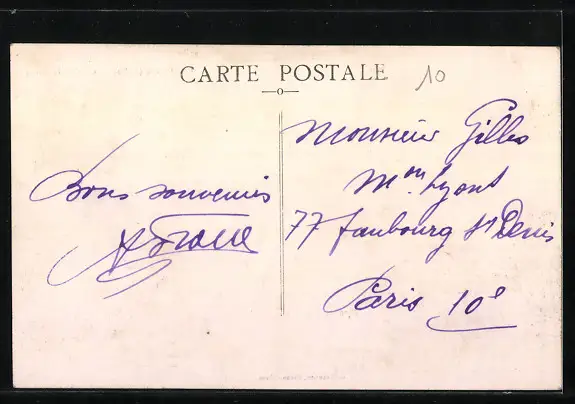 CARTE POSTALE
10
Bons souvenirs
Monsieur Gilles
Mon
77 faubourg St Denis
Paris 10e